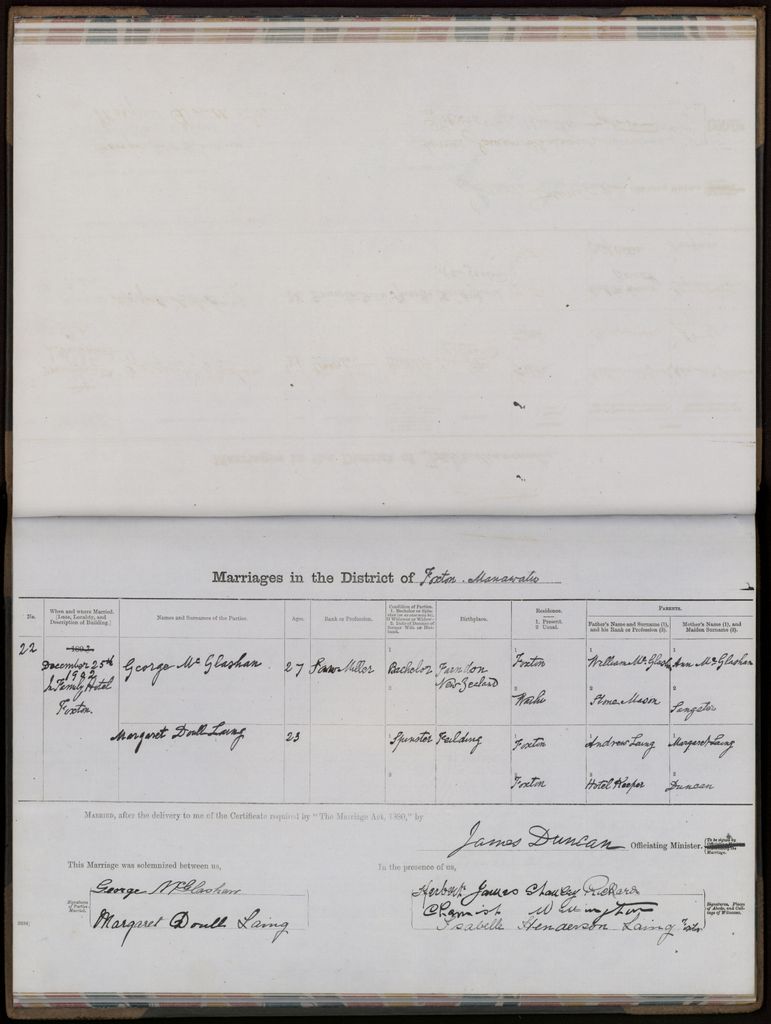 Marriages in the District of Foxton Manawatu
No.
When and where Married. (Date, Locality, and Description of Building.)
Names and Surnames of the Parties.
Ages.
Rank or Profession.
Condition of Parties. 1. Bachelor or Spinster (or as case may be). If Widower or Widow— 2. Date of Decease of former Wife or Husband.
Birthplace.
Residence. 1. Present. 2. Usual.
PARENTS.
Father's Name and Surname (1), and his Rank or Profession (2).
Mother's Name (1), and Maiden Surname (2).
22
December 25th
1902
Family Hotel
Foxton.
George McGlashan
27
Saw Miller
Bachelor
New Zealand
1 Foxton
2
1 William McGlashan
2 Stone Mason
1 Ann McGlashan
2 Sangster
Margaret Doull Laing
23
1 Spinster
2
Feilding
1 Foxton
2 Foxton
1 Andrew Laing
2 Hotel Keeper
1 Margaret Laing
2 Duncan
MARRIED, after the delivery to me of the Certificate required by "The Marriage Act, 1880," by
James Duncan Officiating Minister.
This Marriage was solemnized between us,
In the presence of us,
Signatures of Parties Married.
George McGlashan
Margaret Doull Laing
Herbert James Stanley Rickard
Chemist Wellington
Isabella Henderson Laing
Signatures, Places of Abode, and Callings of Witnesses.